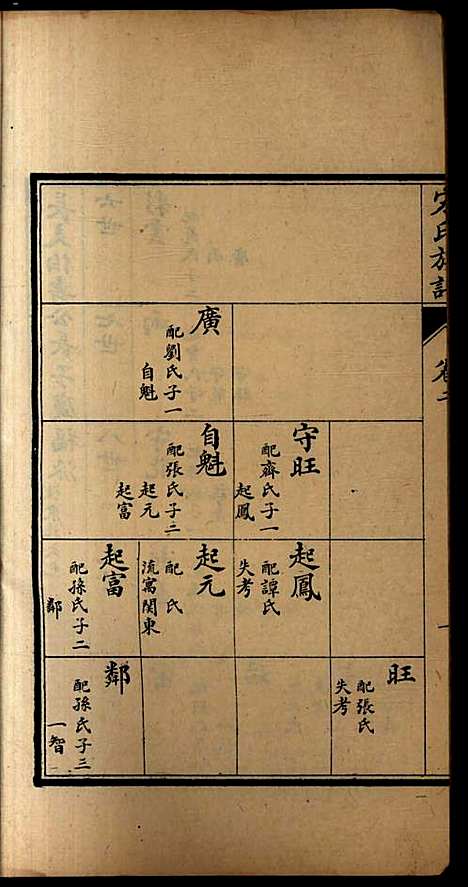 宋氏族譜
卷二
廣
配劉氏子一
自魁
守旺
配齊氏子一
起鳳
自魁
配張氏子二
起元
起富
起鳳
配譚氏
失考
起元
配 氏
流寓関東
起富
配孫氏子二
鄰
旺
配張氏
失考
鄰
配孫氏子三
一智